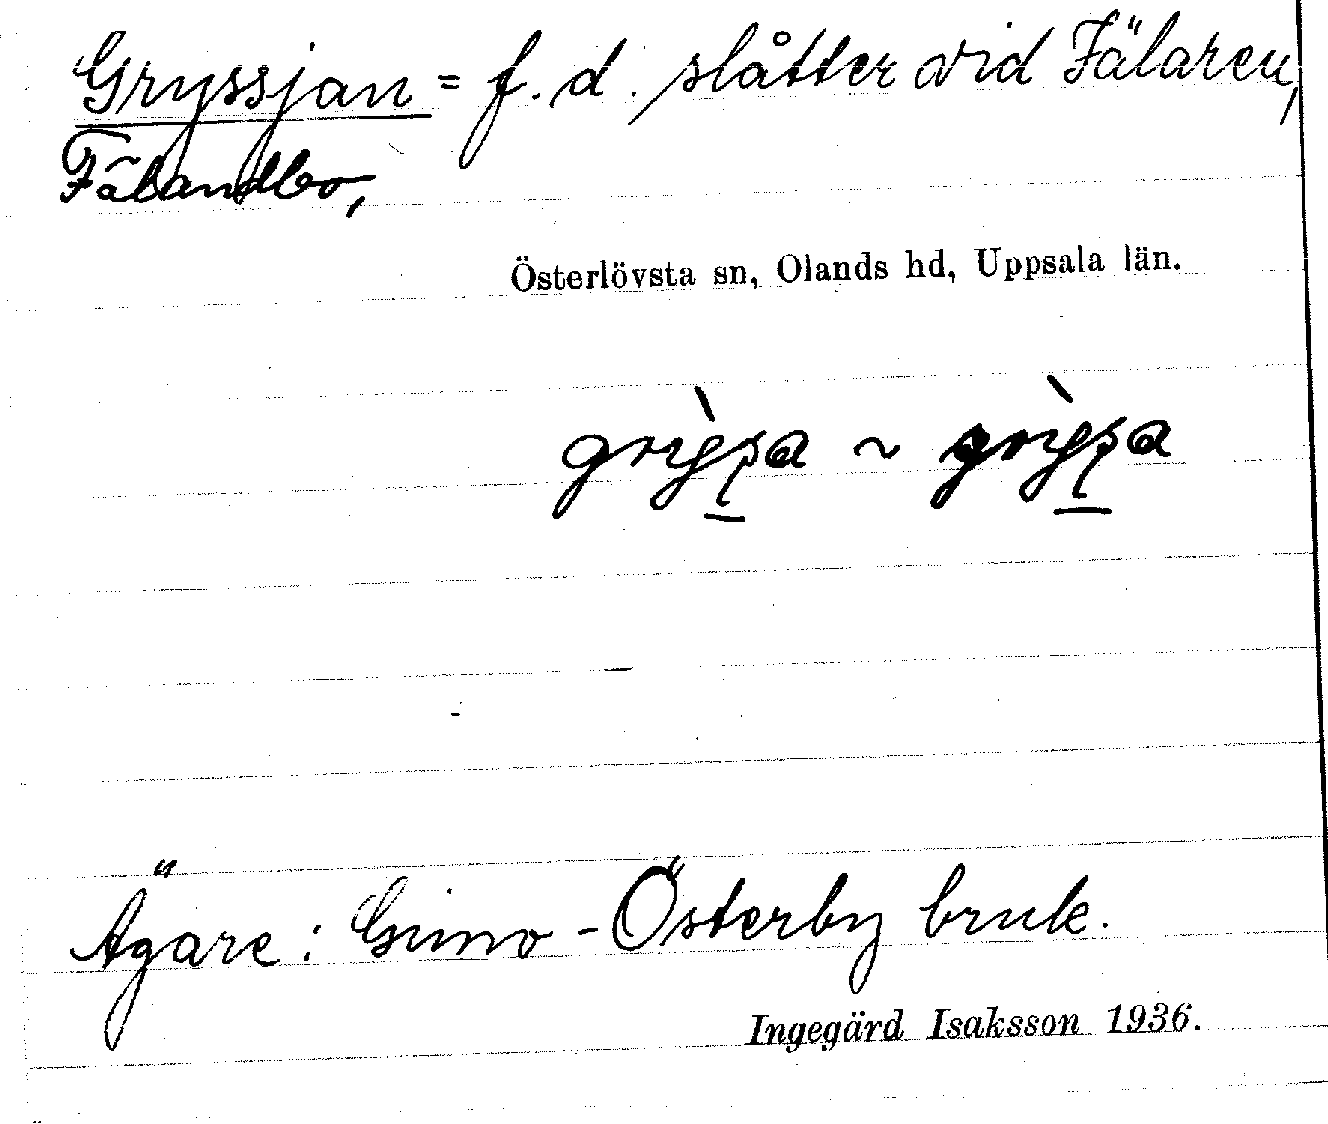 Gryssjan = f. d. slåtter vid Fälaren,
Fälandbo,
Österlövsta sn, Olands hd, Uppsala län.
Ägare: Gimo-Österby bruk.
Ingegärd Isaksson 1936.